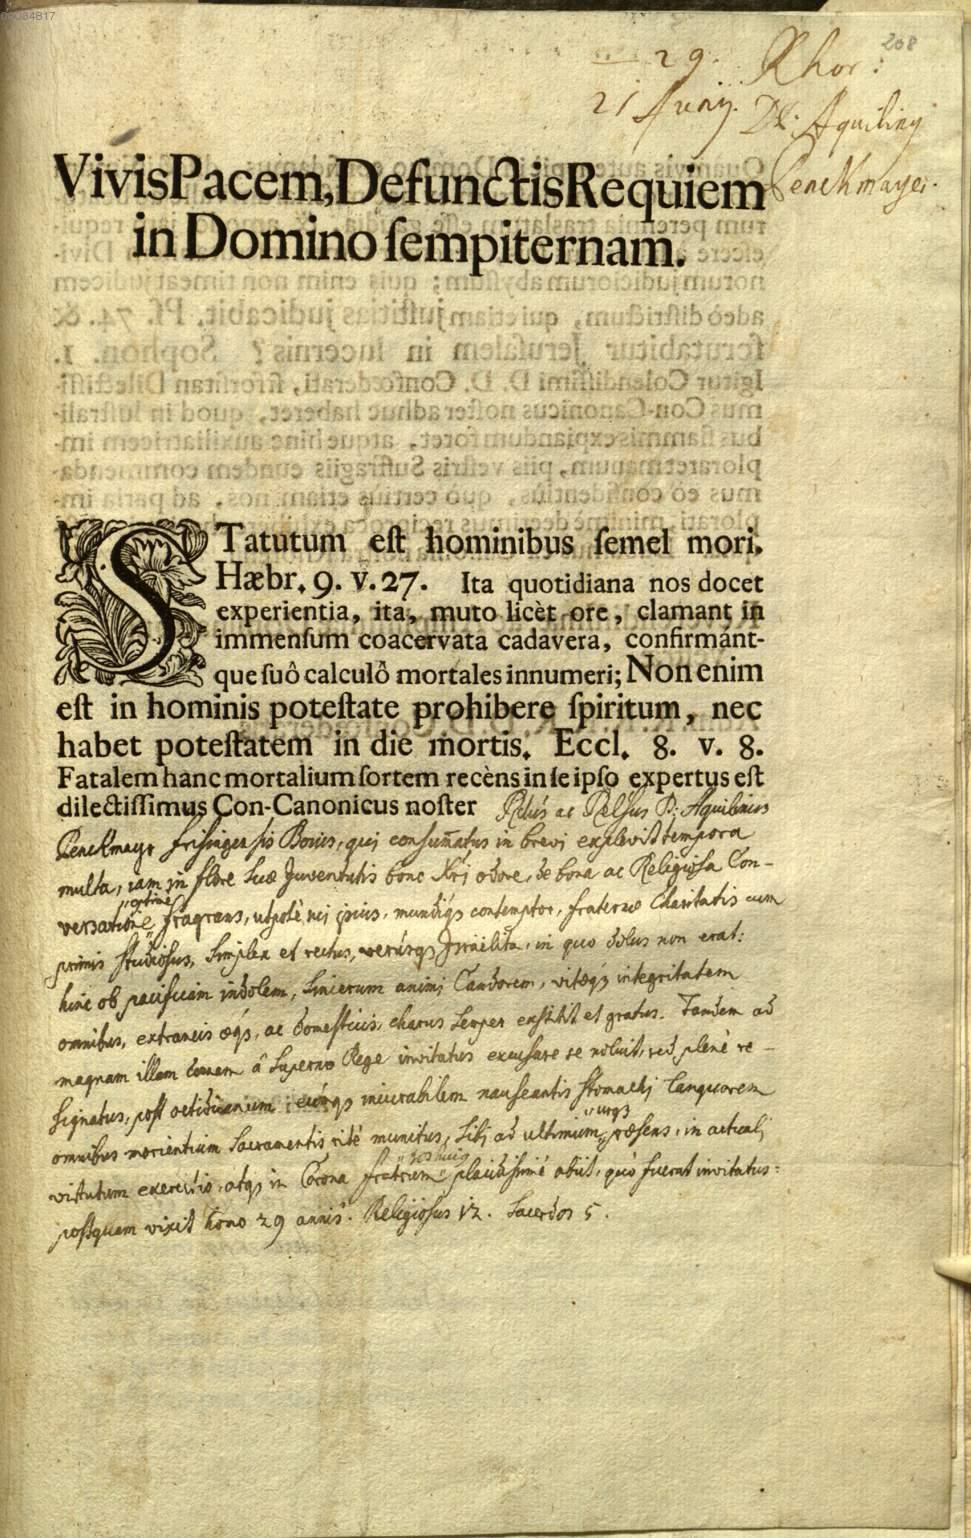 00084817
208
29. Rhor:
21 Junij. Dñ: Aquiliny
Penckmayer.
Vivis Pacem, Defunctis Requiem
in Domino ſempiternam.
STatutum eſt hominibus ſemel mori.
Hæbr. 9. v. 27. Ita quotidiana nos docet
experientia, ita, muto licèt ore, clamant in
immenſum coacervata cadavera, confirmánt-
que ſuô calculô mortales innumeri; Non enim
eſt in hominis poteſtate prohibere ſpiritum, nec
habet poteſtatem in die mortis. Eccl. 8. v. 8.
Fatalem hanc mortalium ſortem recèns in ſe ipſo expertus eſt
dilectiſſimus Con-Canonicus noſter Rdus ac Relſus P: Aquilinus
Penckmayr friſingenſis Boius, qui conſum̃atus in brevi explevit tempora
multa, iam in flore ſuæ Juventutis bonc Xri odore, de bona ac Religioſa Con-
verſatione optimè fragrans, utpotè rei ipſius, mundiq3 contemptor, fraternæ Charitatis cum
primis ſtudioſus, ſimplex et rectus, verúsq3 Israëlita, in quo dolus non erat:
hinc ob pacificam indolem, ſincerum animi Candorem, vitæq3 integritatem
omnibus, extraneis æq3, ac domeſticis, charus ſemper exſtitit et gratus. Tandem ad
magnam illam cœnam â ſuperno Rege invitatus excuſare se noluit, sed plenè re-
ſignatus, poſt octiduanum eúmq3 incurabilem nauſeantis ſtomachi languorem
omnibus morientium Sacramentis ritè munitus, ſibi ad ultimum uſq3 præſens, in actuali
virtutum exercitio, atq3 in Corona fratrum placidiſſimè abiit, quò fuerat invitatus:
poſtquam vixit homo 29 annis. Religioſus 12. Sacerdos 5.